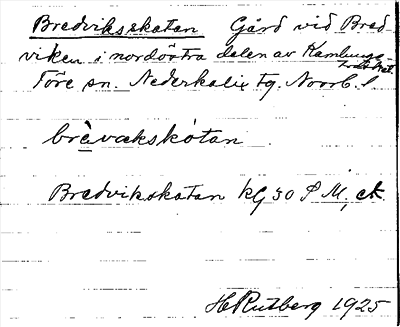 Bredviksskatan Gård vid Bred
viken i nordöstra delen av Kamlunge-
träsket.
Töre sn. Nederkalix tg. Norrb. l
brèvækskótan
Bredvikskatan kG 30 P M, ek
H Rutberg 1925